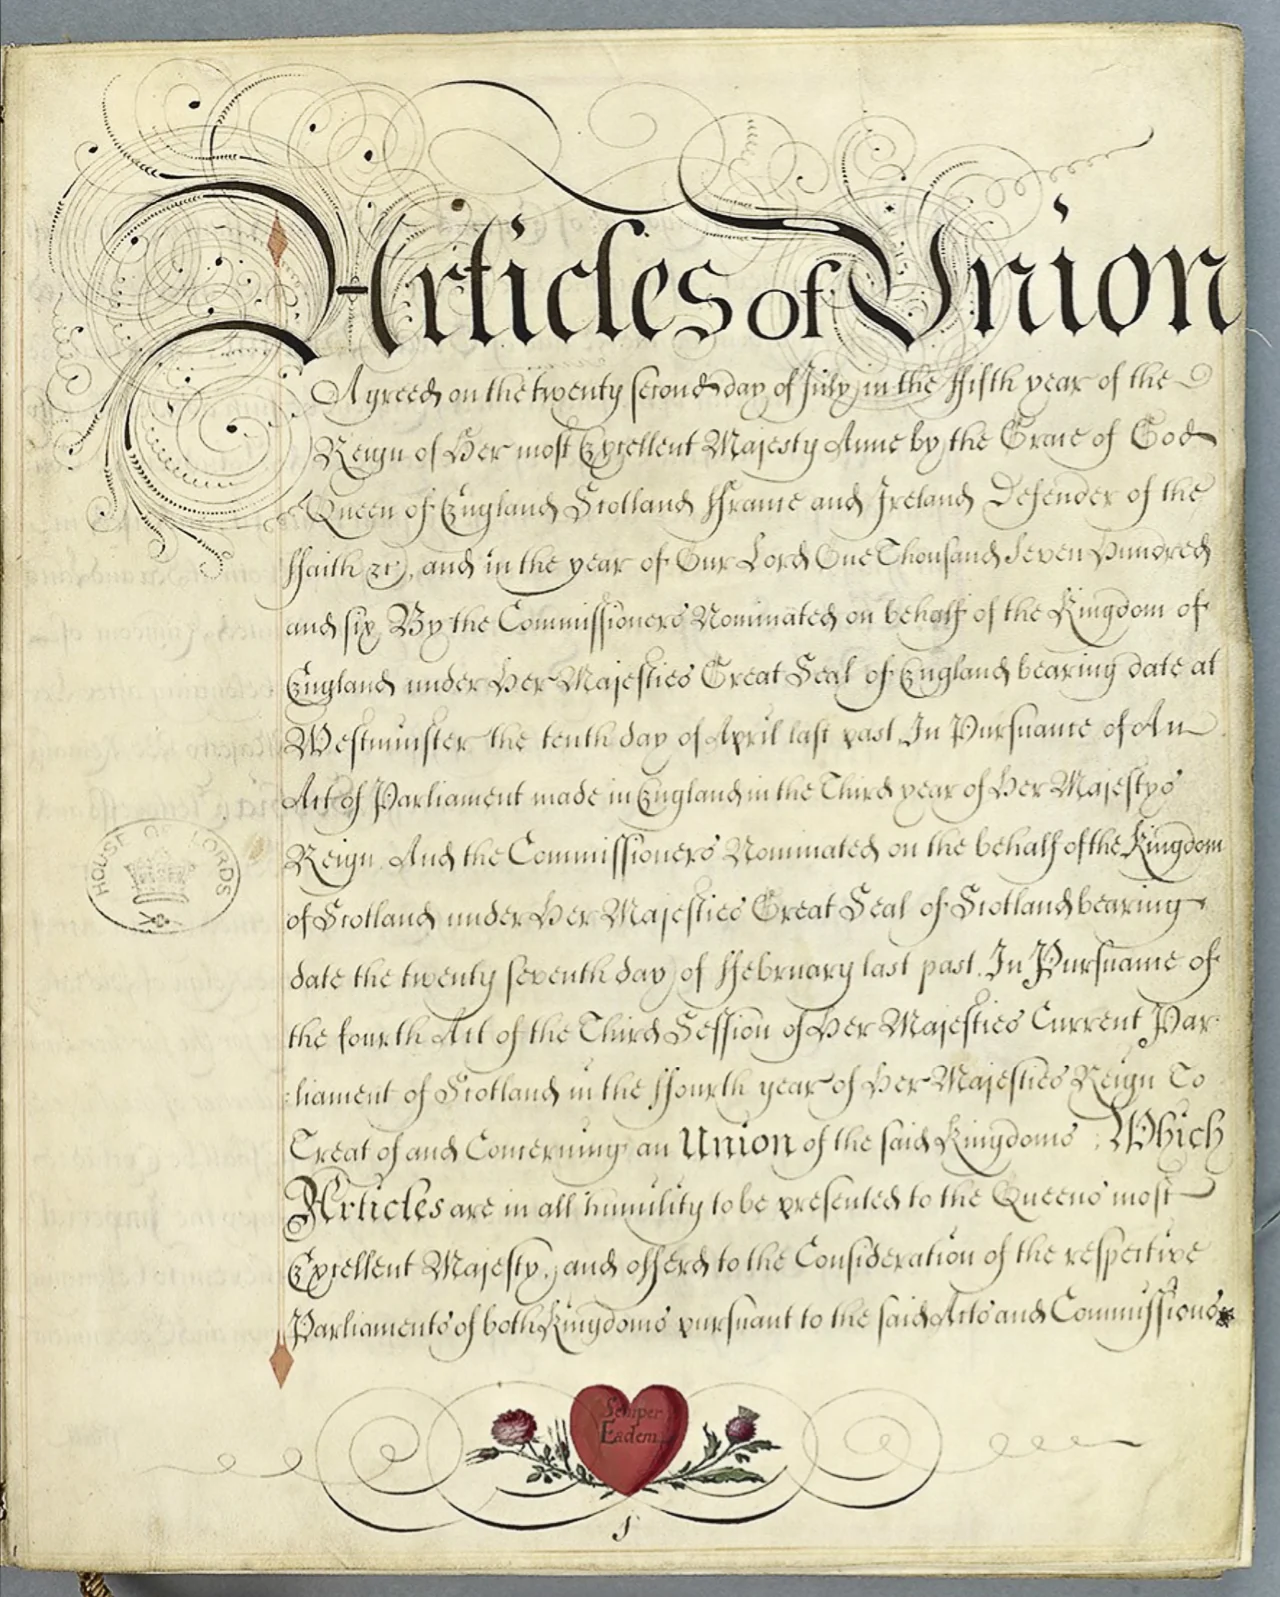 Articles of Union
Agreed on the twenty second day of July, in the ffifth year of the
Reign of Her most Excellent Majesty Anne by the Grace of God
Queen of England Scotland ffrance and Ireland Defender of the
ffaith &c), and in the year of Our Lord One Thousand Seven Hundred
and six, By the Commissioners Nominated on behalf of the Kingdom of
England under Her Majesties Great Seal of England bearing date at
Westminster the tenth day of April last past In Pursuance of An
Act of Parliament made in England in the Third year of Her Majestys
Reign. And the Commissioners Nominated on the behalf of the Kingdom
of Scotland under Her Majesties Great Seal of Scotland bearing
date the twenty seventh day of ffebruary last past. In Pursuance of
the fourth Act of the Third Session of Her Majesties Current Par-
:liament of Scotland in the ffourth year of Her Majesties Reign To
Treat of and Concerning an Union of the said Kingdoms : Which
Articles are in all humility to be presented to the Queens most
Excellent Majesty, and offerd to the Consideration of the respective
Parliaments of both Kingdoms pursuant to the said Acts and Commissions
HOUSE OF LORDS
Semper
Eadem
1